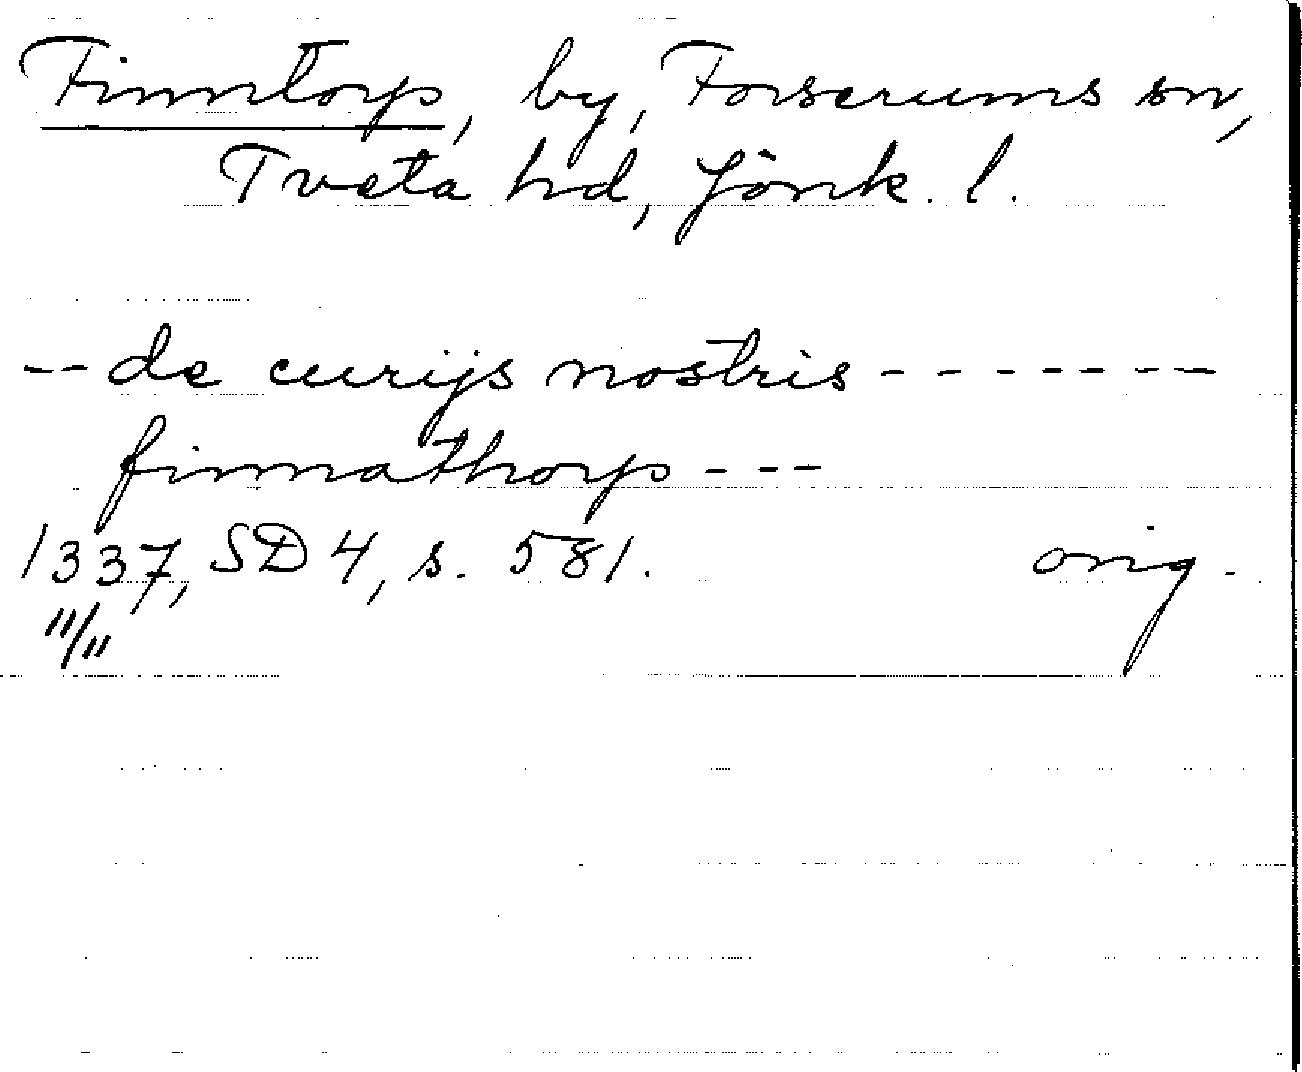 Finntorp, by, Forserums sn,
Tveta hd, Jönk. l.
-- de curijs nostris -------
finnathorp ---
1337, SD 4, s. 581. orig.
11/11